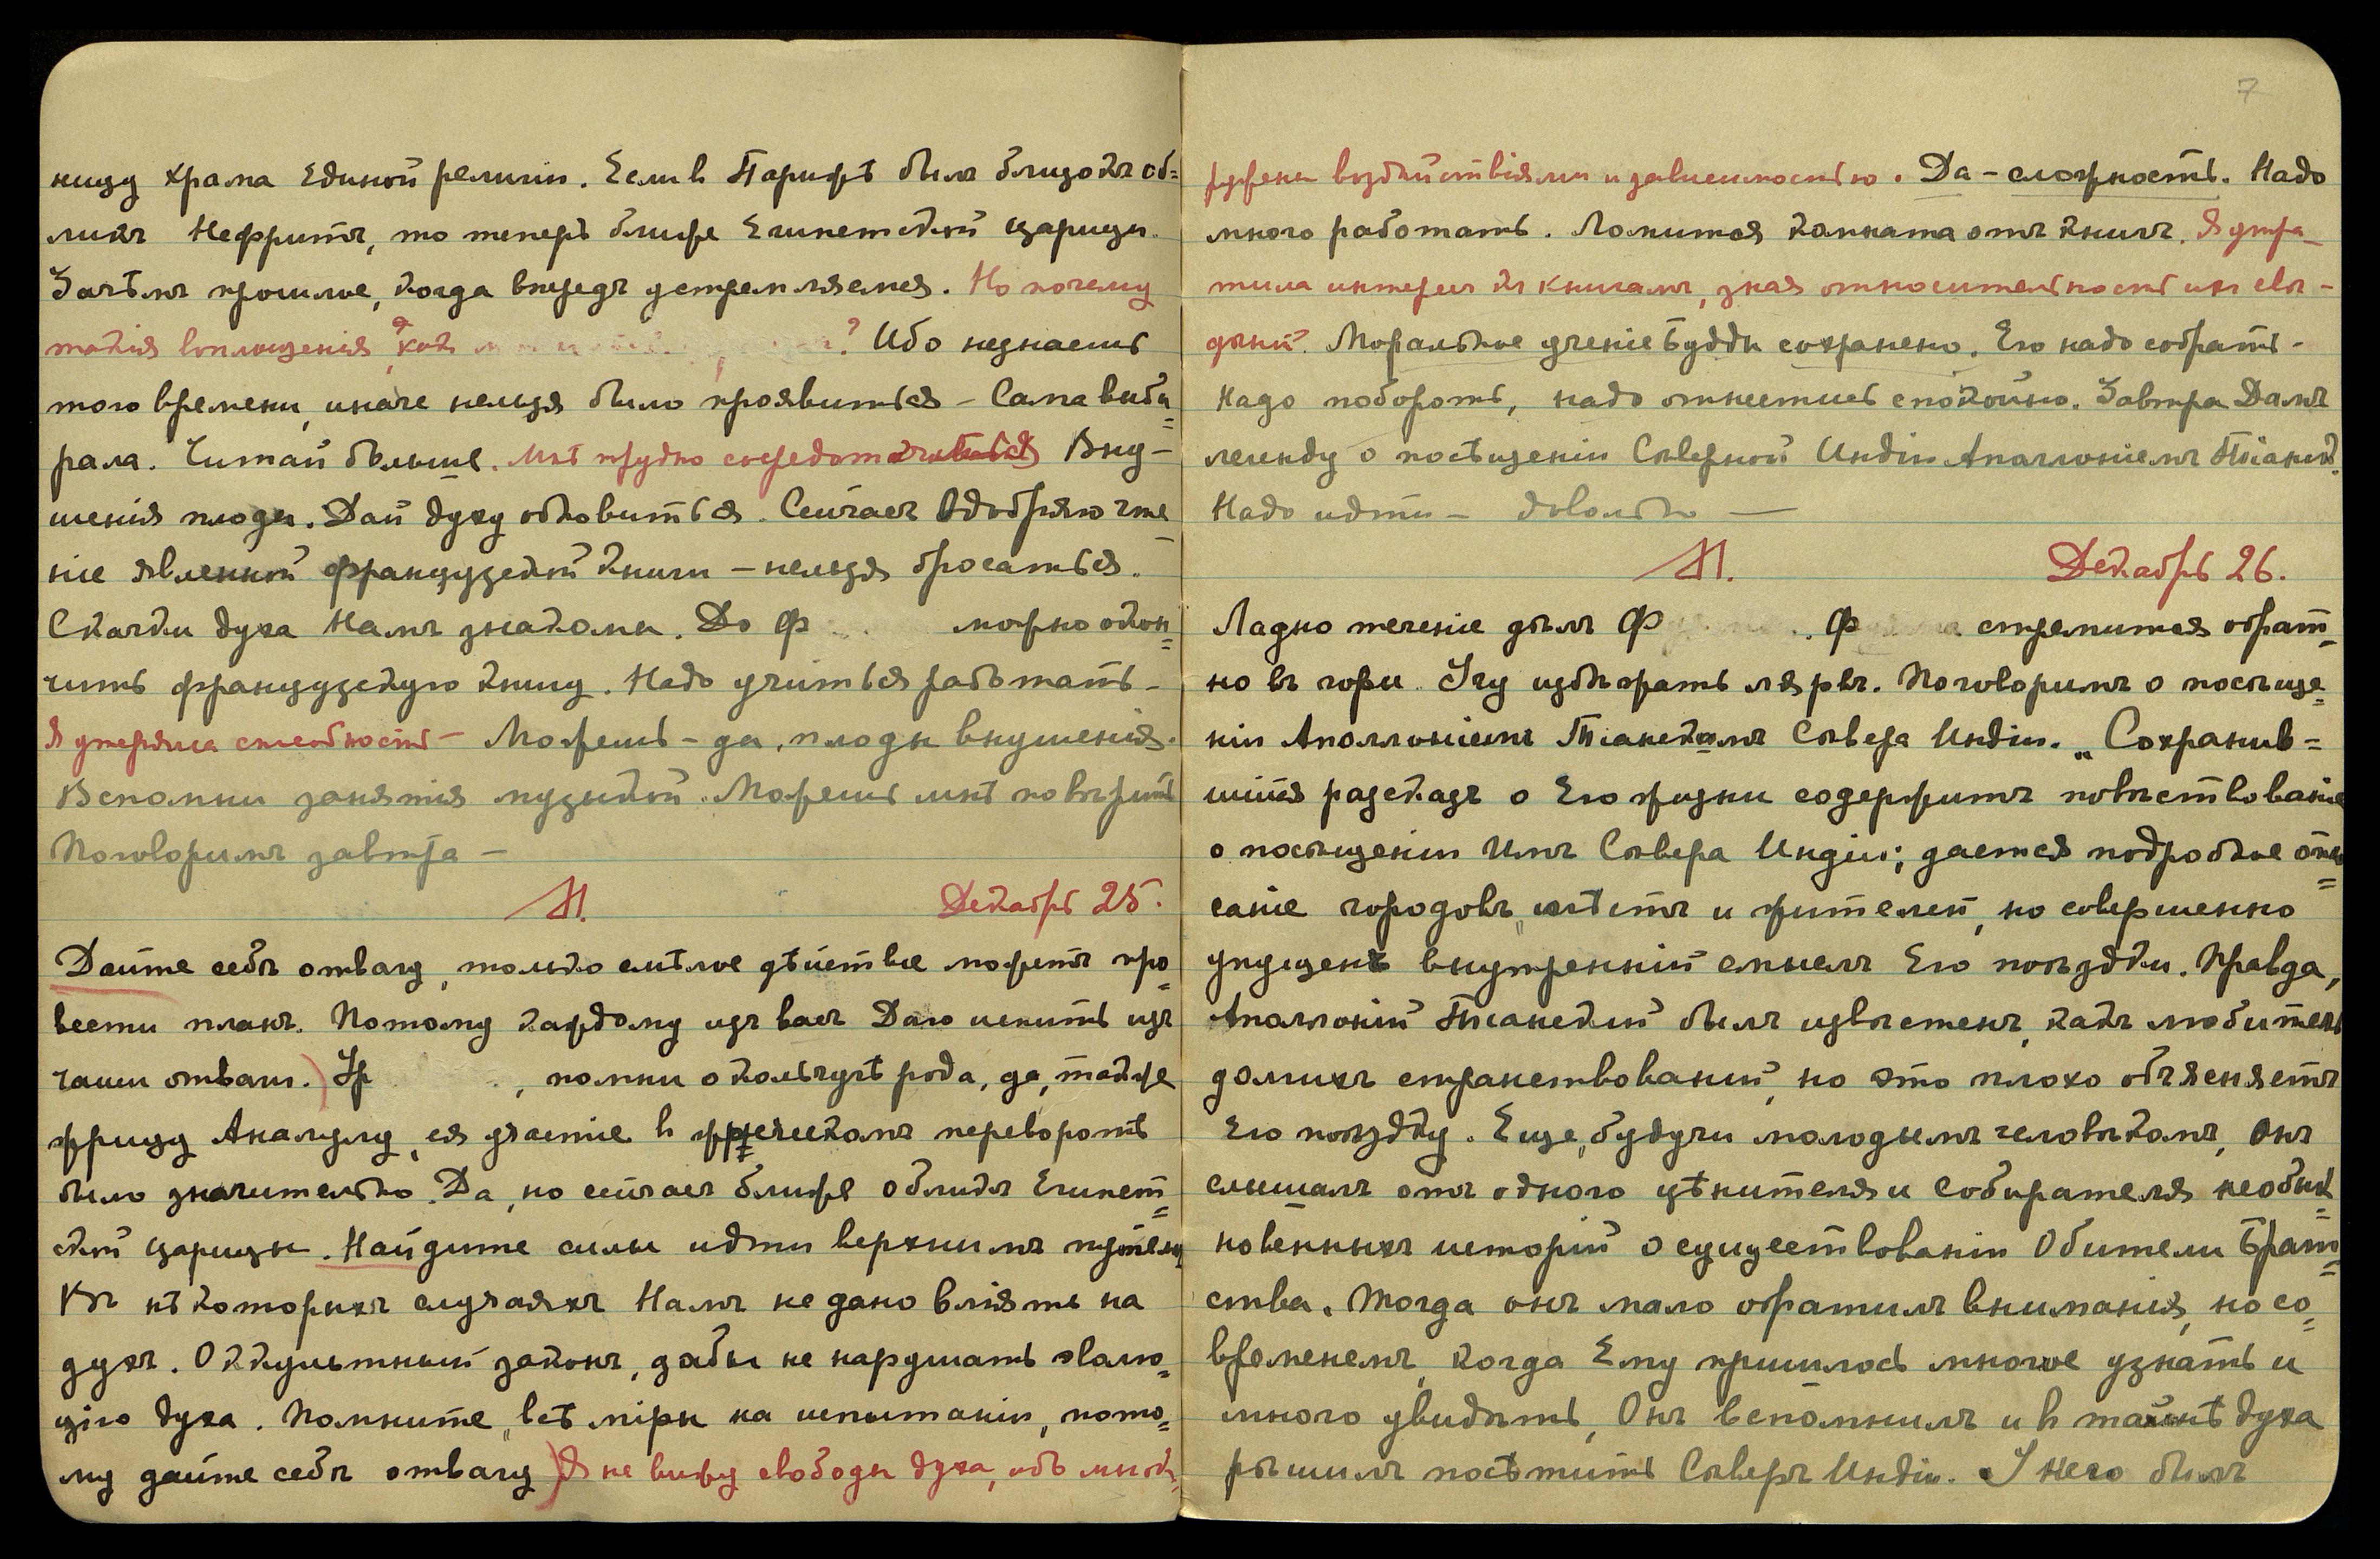 ницу храма Единой религіи. Если в Парижѣ былъ близокъ об=
ликъ Нефритъ, то теперь ближе Египетской царицы.
Зачѣмъ прошлое, когда впередъ устремляемся. Но почему
такія воплощенія, ? Ибо незнаешь
того времени, иначе нельзя было проявиться – Сама выби=
рала. Читай больше. Мнѣ трудно сосредоточиться Вну–
шенія плоды. Дай духу обновиться. Сейчасъ Одобряю чте
ніе явленной французской книги – нельзя бросаться.
Скачки духа Намъ знакомы. До Ф можно окон=
чить французскую книгу. Надо учиться работать –
Я утеряла способность – Можешь – да, плоды внушенія.
Вспомни занятія музыкой. Можешь мнѣ повѣрить
Поговоримъ завтра –
М. Декабрь 25.
Дайте себѣ отвагу, только смѣлое дѣйствіе можетъ про=
вести планъ. Потому каждому изъ васъ Даю испить изъ
чаши отваги.) Ур , помни о кольчугѣ рода, да, также
жрицу Аналулу, ея участіе в жреческомъ переворотѣ
было значительно. Да, но сейчасъ ближе обликъ Египет=
ской царицы. Найдите силы идти верхнимъ путемъ
Въ нѣкоторыхъ случаяхъ Намъ не дано вліять на
духъ. Оккультный законъ, дабы не нарушать эволю=
цію духа. Помните, всѣ міры на испытаніи, пото=
му дайте себѣ отвагу) Я не вижу свободы духа, ибо мы
7
воздѣйствіями и зависимостью. Да – сложность. Надо
много работать. Ломится комната отъ книгъ. Я утра–
тила интересъ къ книгамъ, зная относительность ихъ свѣ–
дѣній. Моральное ученіе Будды сохранено. Его надо собрать –
Надо побороть, надо отнестись спокойно. Завтра Дамъ
легенду о посѣщеніи Сѣверной Индіи Аполлоніемъ Тіанск.
Надо идти – довольно —
М. Декабрь 26.
Ладно теченіе дѣлъ Ф . Ф стремится обрат=
но въ горы. Учу избѣгать лярвъ. Поговоримъ о посѣще=
ніи Аполлоніемъ Тіанскомъ Сѣвера Индіи. „Сохранив=
шійся разсказъ о Его жизни содержитъ повѣствованіе
о посѣщеніи Имъ Сѣвера Индіи; дается подробное опи=
саніе городовъ, мѣстъ и жителей, но совершенно
упущенъ внутренній смыслъ Его поѣздки. Правда,
Аполлоній Тіанскій былъ извѣстенъ, какъ любитель
долгихъ странствованій, но это плохо объясняетъ
Его поѣздку. Еще, будучи молодымъ человѣкомъ, Онъ
слышалъ отъ одного цѣнителя и собирателя необык=
новенныхъ исторій о существованіи Обители Брат=
ства. Тогда онъ мало обратилъ вниманія, но со=
временемъ, когда Ему пришлось многое узнать и
много увидѣть, Онъ вспомнилъ и в тайнѣ духа
рѣшилъ посѣтить Сѣверъ Индіи. У Него былъ